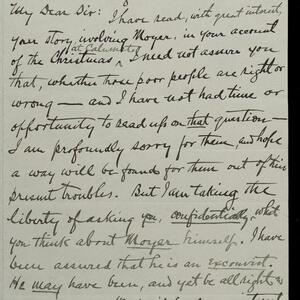 My Dear Sir:
I have read, with great interest,
your story, involving Moyer, in your account
at Calumet,
of the Christmas ^ I need not assure you
that, whether those poor people are right or
wrong — and I have not had time or
opportunity to read up on that question —
I am profoundly sorry for them, and hope
a way will be found for them out of their
present troubles. But I am taking the
liberty of asking you, confidentially, what
you think about Moyer himself. I have
been assured that he is an exconvict.
He may have been, and yet be all right